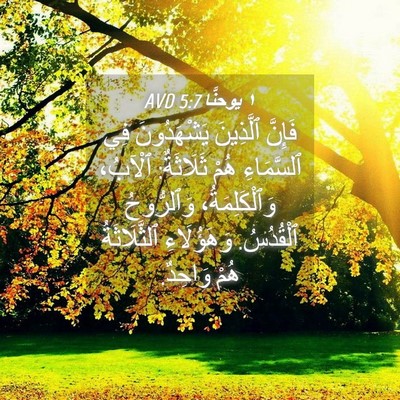 ١ يوحنَّا 5:7 AVD
فَإِنَّ ٱلَّذِينَ يَشْهَدُونَ فِي
ٱلسَّمَاءِ هُمْ ثَلَاثَةٌ: ٱلْآبُ،
وَٱلْكَلِمَةُ، وَٱلرُّوحُ
ٱلْقُدُسُ. وَهَؤُلَاءِ ٱلثَّلَاثَةُ
هُمْ وَاحِدٌ.